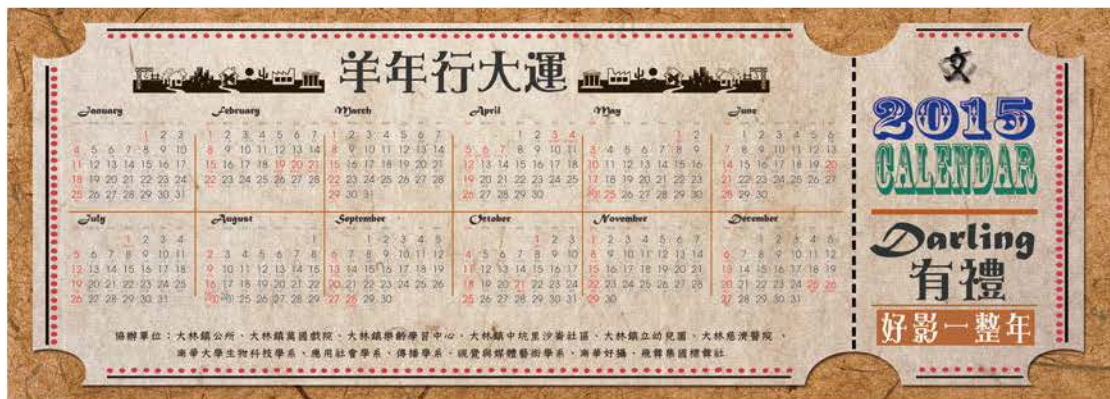 羊年行大運
January
1 2 3
4 5 6 7 8 9 10
11 12 13 14 15 16 17
18 19 20 21 22 23 24
25 26 27 28 29 30 31
February
1 2 3 4 5 6 7
8 9 10 11 12 13 14
15 16 17 18 19 20 21
22 23 24 25 26 27 28
March
1 2 3 4 5 6 7
8 9 10 11 12 13 14
15 16 17 18 19 20 21
22 23 24 25 26 27 28
29 30 31
April
1 2 3 4
5 6 7 8 9 10 11
12 13 14 15 16 17 18
19 20 21 22 23 24 25
26 27 28 29 30
May
1 2
3 4 5 6 7 8 9
10 11 12 13 14 15 16
17 18 19 20 21 22 23
25 26 27 28 29 30
June
1 2 3 4 5 6
7 8 9 10 11 12 13
14 15 16 17 18 19 20
21 22 23 24 25 26 27
28 29 30
July
1 2 3 4
5 6 7 8 9 10 11
12 13 14 15 16 17 18
19 20 21 22 23 24 25
26 27 28 29 30 31
August
1
2 3 4 5 6 7 8
9 10 11 12 13 14 15
16 17 18 19 20 21 22
25 26 27 28 29
September
1 2 3 4 5
6 7 8 9 10 11 12
13 14 15 16 17 18 19
20 21 22 23 24 25 26
27 28 29 30
October
1 2 3
4 5 6 7 8 9 10
11 12 13 14 15 16 17
18 19 20 21 22 23 24
25 26 27 28 29 30 31
November
1 2 3 4 5 6 7
8 9 10 11 12 13 14
15 16 17 18 19 20 21
22 23 24 25 26 27 28
29 30
December
1 2 3 4 5
6 7 8 9 10 11 12
13 14 15 16 17 18 19
20 21 22 23 24 25 26
27 28 29 30 31
協辦單位：大林鎮公所、大林鎮萬國戲院、大林鎮樂齡學習中心、大林鎮中坑里沙崙社區、大林鎮立幼兒園、大林慈濟醫院、
南華大學生物科技學系、應用社會學系、傳播學系、視覺與媒體藝術學系、南華好攝、飛韓集國標韓社
文
2015
CALENDAR
Darling
有禮
好影一整年